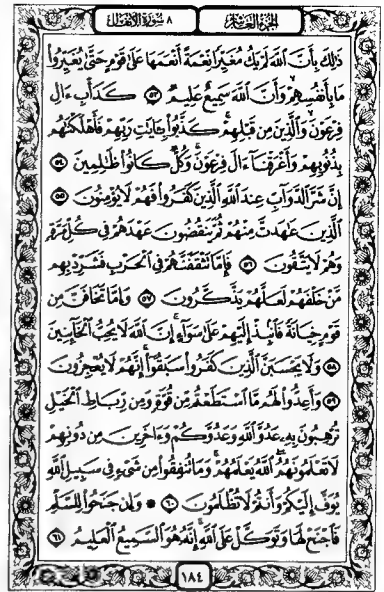 الجزء العاشر ٨ سورة الأنفال
ذَٰلِكَ بِأَنَّ ٱللَّهَ لَمۡ يَكُ مُغَيِّرٗا نِّعۡمَةً أَنۡعَمَهَا عَلَىٰ قَوۡمٍ حَتَّىٰ يُغَيِّرُواْ
مَا بِأَنفُسِهِمۡ وَأَنَّ ٱللَّهَ سَمِيعٌ عَلِيمٞ ٥٣ كَدَأۡبِ ءَالِ
فِرۡعَوۡنَ وَٱلَّذِينَ مِن قَبۡلِهِمۡۚ كَذَّبُواْ بِـَٔايَٰتِ رَبِّهِمۡ فَأَهۡلَكۡنَٰهُم
بِذُنُوبِهِمۡ وَأَغۡرَقۡنَآ ءَالَ فِرۡعَوۡنَۚ وَكُلّٞ كَانُواْ ظَٰلِمِينَ ٥٤
إِنَّ شَرَّ ٱلدَّوَآبِّ عِندَ ٱللَّهِ ٱلَّذِينَ كَفَرُواْ فَهُمۡ لَا يُؤۡمِنُونَ ٥٥
ٱلَّذِينَ عَٰهَدتَّ مِنۡهُمۡ ثُمَّ يَنقُضُونَ عَهۡدَهُمۡ فِي كُلِّ مَرَّةٖ
وَهُمۡ لَا يَتَّقُونَ ٥٦ فَإِمَّا تَثۡقَفَنَّهُمۡ فِي ٱلۡحَرۡبِ فَشَرِّدۡ بِهِم
مَّنۡ خَلۡفَهُمۡ لَعَلَّهُمۡ يَذَّكَّرُونَ ٥٧ وَإِمَّا تَخَافَنَّ مِن
قَوۡمٍ خِيَانَةٗ فَٱنۢبِذۡ إِلَيۡهِمۡ عَلَىٰ سَوَآءٍۚ إِنَّ ٱللَّهَ لَا يُحِبُّ ٱلۡخَآئِنِينَ
٥٨ وَلَا يَحۡسَبَنَّ ٱلَّذِينَ كَفَرُواْ سَبَقُوٓاْۚ إِنَّهُمۡ لَا يُعۡجِزُونَ
٥٩ وَأَعِدُّواْ لَهُم مَّا ٱسۡتَطَعۡتُم مِّن قُوَّةٖ وَمِن رِّبَاطِ ٱلۡخَيۡلِ
تُرۡهِبُونَ بِهِۦ عَدُوَّ ٱللَّهِ وَعَدُوَّكُمۡ وَءَاخَرِينَ مِن دُونِهِمۡ
لَا تَعۡلَمُونَهُمُ ٱللَّهُ يَعۡلَمُهُمۡۚ وَمَا تُنفِقُواْ مِن شَيۡءٖ فِي سَبِيلِ ٱللَّهِ
يُوَفَّ إِلَيۡكُمۡ وَأَنتُمۡ لَا تُظۡلَمُونَ ٦٠ ۞ وَإِن جَنَحُواْ لِلسَّلۡمِ
فَٱجۡنَحۡ لَهَا وَتَوَكَّلۡ عَلَى ٱللَّهِۚ إِنَّهُۥ هُوَ ٱلسَّمِيعُ ٱلۡعَلِيمُ ٦١
١٨٤